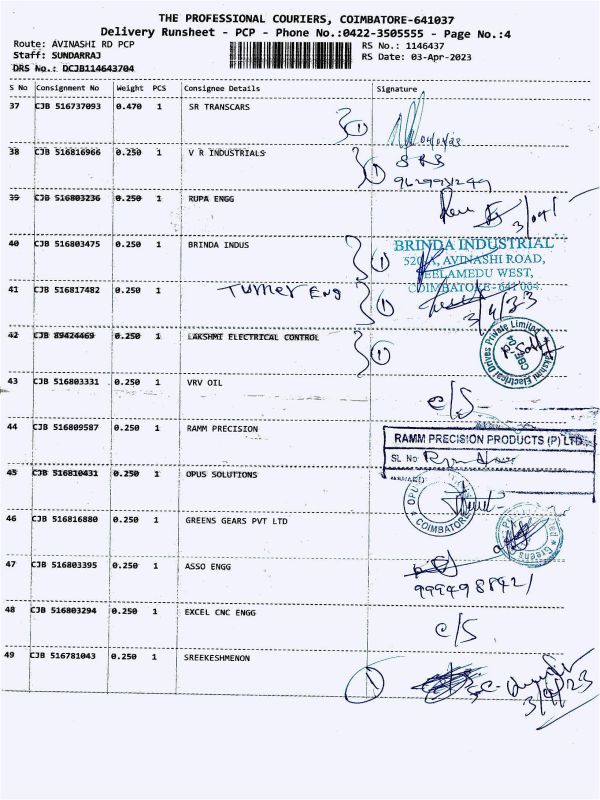 THE PROFESSIONAL COURIERS, COIMBATORE-641037
Delivery Runsheet - PCP - Phone No.:0422-3505555 - Page No.:4
Route: AVINASHI RD PCP
RS No.: 1146437
Staff: SUNDARRAJ
RS Date: 03-Apr-2023
DRS No.: DCJB114643704
S No Consignment No Weight PCS Consignee Details Signature
37 CJB 516737093 0.470 1 SR TRANSCARS 1
38 CJB 516816966 0.250 1 V R INDUSTRIALS 1
39 CJB 516803236 0.250 1 RUPA ENGG
40 CJB 516803475 0.250 1 BRINDA INDUS 1
BRINDA INDUSTRIAL
AVINASHI ROAD,
PEELAMEDU WEST,
COIMBATORE - 641 004.
41 CJB 516817482 0.250 1 Turner Eng 1
3/4/23
42 CJB 89424469 0.250 1 LAKSHMI ELECTRICAL CONTROL 1
Lakshmi Electrical Drives Private Limited
43 CJB 516803331 0.250 1 VRV OIL
C/S
44 CJB 516809587 0.250 1 RAMM PRECISION
RAMM PRECISION PRODUCTS (P) LTD
SL No
45 CJB 516810431 0.250 1 OPUS SOLUTIONS
OPUS
COIMBATORE
46 CJB 516816880 0.250 1 GREENS GEARS PVT LTD
Greens
47 CJB 516803395 0.250 1 ASSO ENGG
48 CJB 516803294 0.250 1 EXCEL CNC ENGG
C/S
49 CJB 516781043 0.250 1 SREEKESHMENON 1
3/4/23